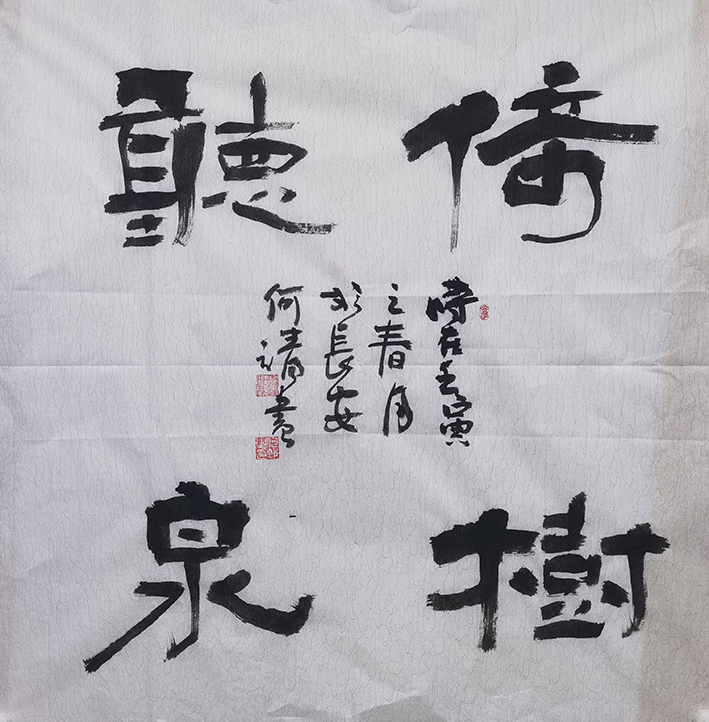 倚樹
聽泉
時在壬寅
之春月
於長安
何清書